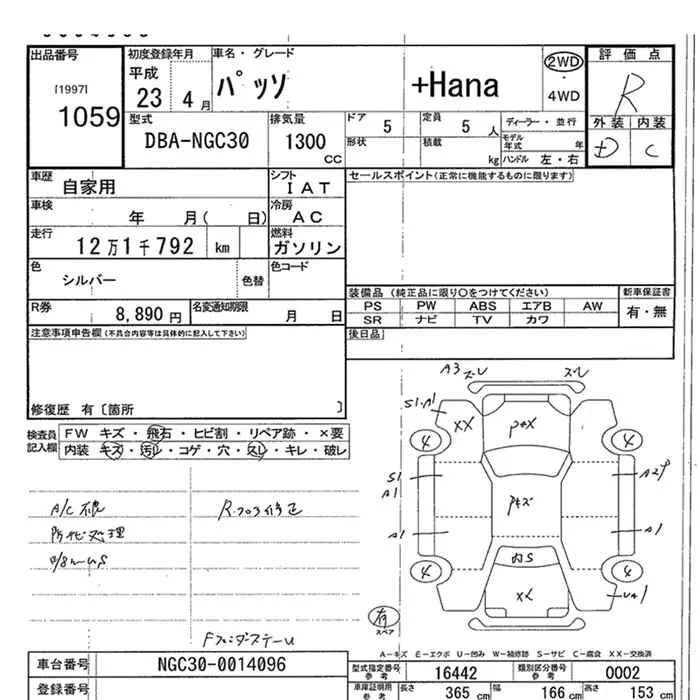 出品番号 初度登録年月 車名・グレード 評価点
[1997] 平成 パッソ +Hana 2WD R
1059 23 4月 4WD
型式 排気量 ドア 定員 ディーラー・並行 外装 内装
DBA-NGC30 1300 CC 5 5人 モデル年式 年 D C
形状 積載 kg ハンドル 左・右
車歴 自家用 シフト IAT セールスポイント(正常に機能するものに限ります)
車検 年 月( 日) 冷房 AC
走行 12万1千792 km 燃料 ガソリン
色 シルバー 色替 色コード
装備品 (純正品に限り○をつけてください) 新車保証書
R券 8,890円 名変通知期限 月 日 PS PW ABS エアB AW 有・無
SR ナビ TV カワ
注意事項申告欄(不具合内容等は具体的に記入して下さい) 後日品
修復歴 有〔箇所 〕
検査員記入欄 FW キズ・飛石・ヒビ割・リペア跡・×要
内装 キズ・汚レ・コゲ・穴・スレ・キレ・破レ
A3 ズレ ズレ
S1・A1 XX
4 4
S1 A1
A1 A1
内S
4 4
有 スペア
A/C
防サビ処理
A-キズ E-エクボ U-凹み W-補修跡 S-サビ C-腐食 XX-交換済
車台番号 NGC30-0014096 型式指定番号参考 16442 類別区分番号参考 0002
登録番号 車庫証明用参考 長さ 365 cm 幅 166 cm 高さ 153 cm